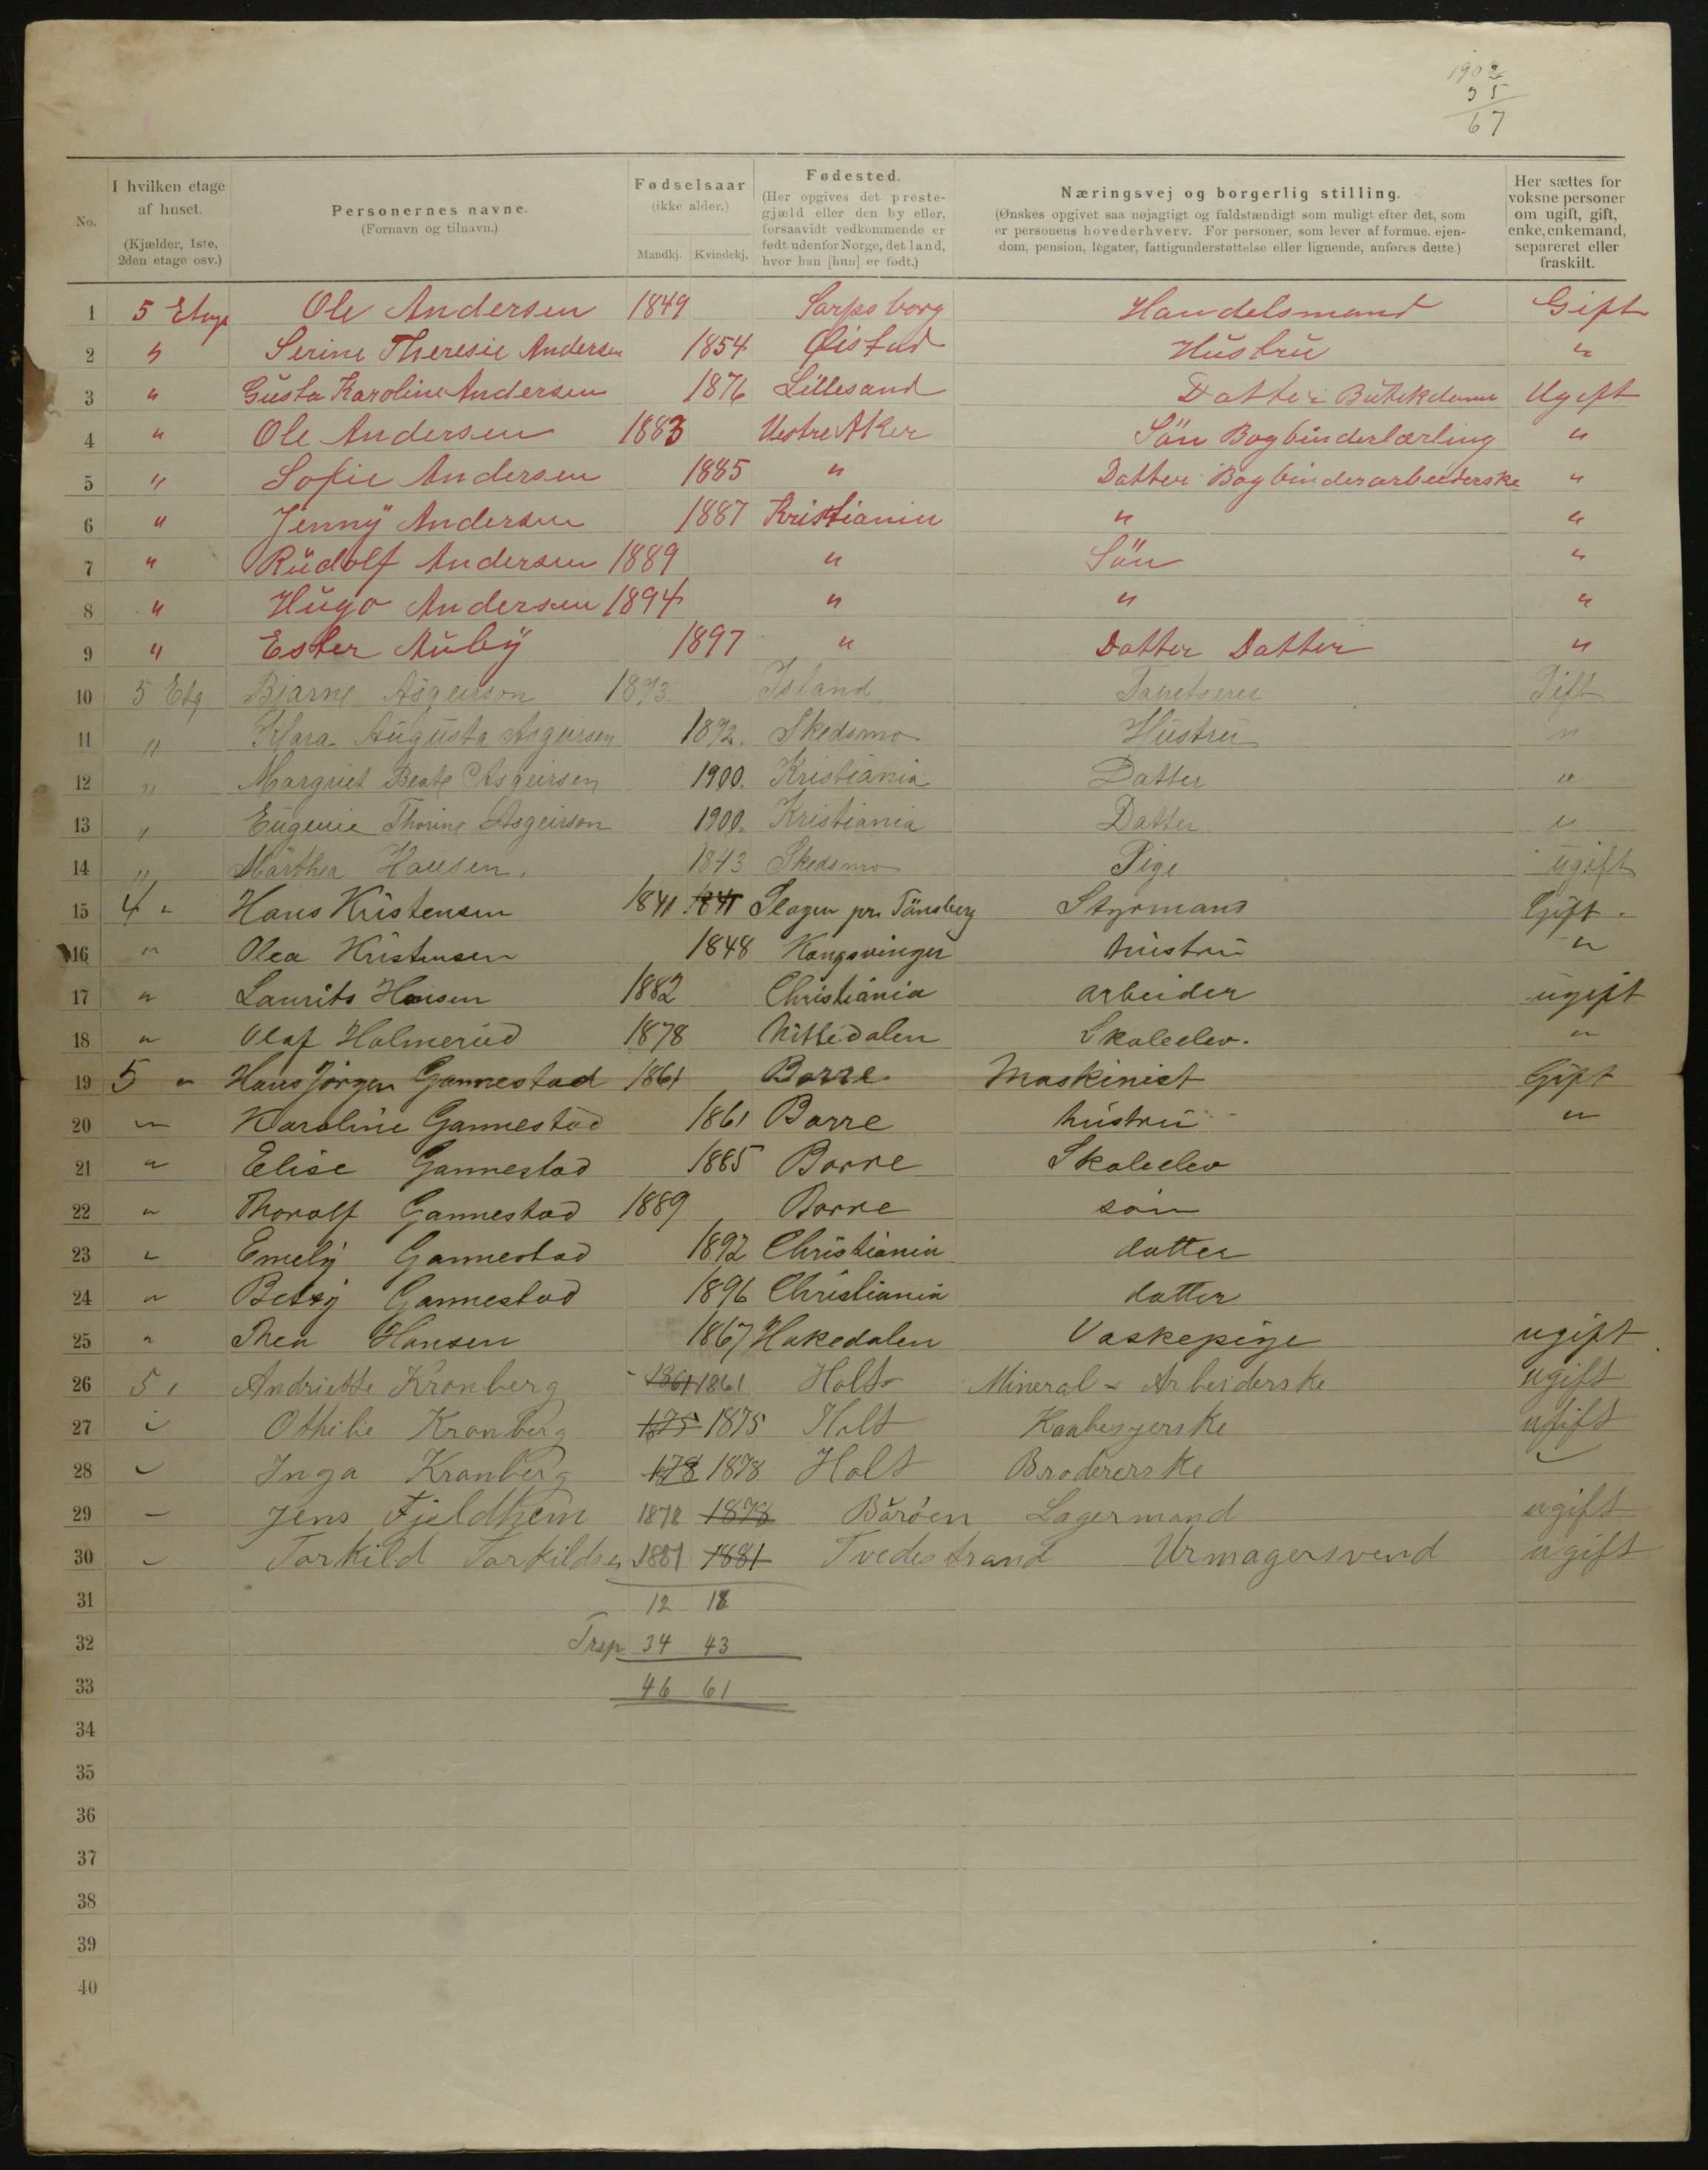 1902
35
67
No. I hvilken etage af huset. (Kjælder, 1ste, 2den etage osv.) Personernes navne. (Fornavn og tilnavn.) Fødselsaar (ikke alder.) Mandkj. Kvindekj. Fødested. (Her opgives det prestegjæld eller den by eller, forsaavidt vedkommende er født udenfor Norge, det land, hvor han [hun] er født.) Næringsvej og borgerlig stilling. (Ønskes opgivet saa nøjagtigt og fuldstændigt som muligt efter det, som er personens hovederhverv. For personer, som lever af formue, ejendom, pension, legater, fattigunderstøttelse eller lignende, anføres dette.) Her sættes for voksne personer om ugift, gift, enke, enkemand, separeret eller fraskilt.
1 5 Etage Ole Andersen 1849 Sarpsborg Handelsmand Gift
2 " Serine Theresie Andersen 1854 Øistad Hustru "
3 " Gusta Karoline Andersen 1876 Lillesand Datter Butikdame Ugift
4 " Ole Andersen 1883 Vestre Aker Sön Bogbinderlærling "
5 " Sofie Andersen 1885 " Datter Bogbinderarbeiderske "
6 " Jenny Andersen 1887 Kristiania " "
7 " Rudolf Andersen 1889 " Sön "
8 " Hugo Andersen 1894 " " "
9 " Ester Auby 1897 " Datter Datter "
10 5 Etg. Bjarne Asgeirson 1873 Island Gift
11 " Klara Augusta Asgeirsen 1892. Skedsmo Hustru "
12 " Margriet Beate Asgeirsen 1900. Kristiania Datter "
13 " Eugenie Thorine Asgeirson 1900. Kristiania Datter "
14 " Marthea Hansen. 1843 Skedsmo Pige ugift
15 4 " Hans Kristensen 1841 1841 Slagen pr. Tönsberg Styrmand Gift.
16 " Olea Kristensen 1848 Kongsvinger hustru "
17 " Laurits Hansen 1882 Christiania arbeider ugift
18 " Olaf Holmerud 1878 Nittedalen Skoleelev. "
19 5 " Hans Jörgen Gannestad 1861 Borre Maskinist Gift
20 " Karoline Gannestad 1861 Borre hustru "
21 " Elise Gannestad 1885 Borre Skoleelev
22 " Thoralf Gannestad 1889 Borre sön
23 " Emely Gannestad 1892 Christiania datter
24 " Betsy Gannestad 1896 Christiania datter
25 " Thea Hansen 1867 Hakedalen Vaskepige ugift
26 5 " Andriette Kronberg 1861 1861 Holt Mineral - Arbeiderske ugift
27 " Othilie Kronberg 1875 1875 Holt Kaabesyerske ugift
28 " Inga Kronberg 1878 1878 Holt Brodererske "
29 " Jens Fjeldhem 1878 1878 Båröen Lagermand ugift
30 " Torkild Torkildsen 1881 1881 Tvedestrand Urmagersvend ugift
31 12 18
32 Trsp. 34 43
33 46 61
34
35
36
37
38
39
40